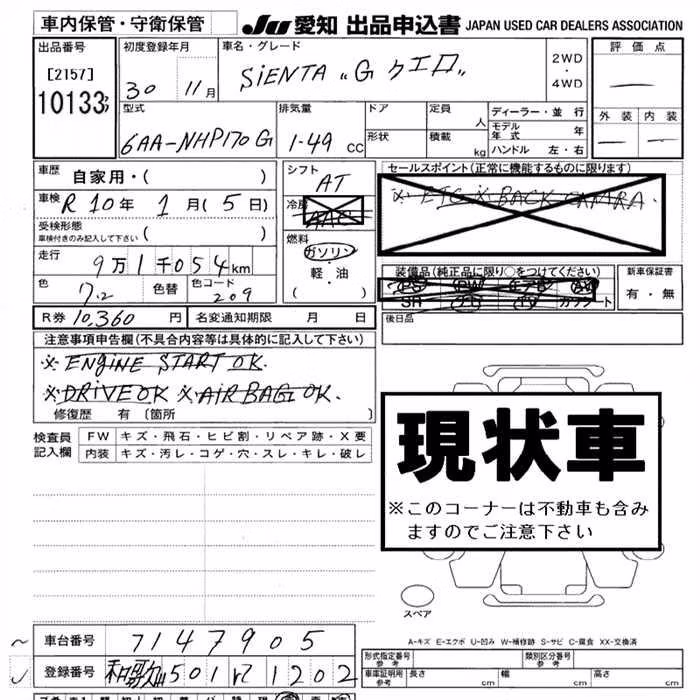 車内保管・守衛保管
JU 愛知 出品申込書 JAPAN USED CAR DEALERS ASSOCIATION
出品番号
[2157]
10133
初度登録年月
30 11月
車名・グレード
SIENTA "G クエロ"
2WD
・
4WD
評価点
外装 内装
型式
6AA-NHP170G
排気量
1-49 CC
ドア
形状
定員 人
積載 kg
ディーラー・並行
モデル年式 年
ハンドル 左・右
車歴
自家用・( )
車検 R 10年 1月(5日)
受検形態
車検付きのみ記入して下さい ( )
走行
9万1千054km
色
色替
色コード
209
シフト
AT
冷房
AAC
燃料
ガソリン
・
軽・油
( )
セールスポイント(正常に機能するものに限ります)
※ ETC ※ BACK CAMRA.
装備品(純正品に限り○をつけてください)
PS PW エアB AW
SR TV カワシート
新車保証書
有・無
R券 10,360 円
名変通知期限 月 日
後日品
注意事項申告欄(不具合内容等は具体的に記入して下さい)
※ENGINE START OK.
※DRIVE OK ※AIR BAG OK.
修復歴 有〔箇所 〕
検査員
記入欄
FW キズ・飛石・ヒビ割・リペア跡・X要
内装 キズ・汚レ・コゲ・穴・スレ・キレ・破レ
現状車
※このコーナーは不動車も含み
ますのでご注意下さい
スペア
A-キズ E-エクボ U-凹み W-補修跡 S-サビ C-腐食 XX-交換済
車台番号 7147905
登録番号 和歌山501 1202
形式指定番号
参考
類別区分番号
参考
車庫証明用
参考
長さ cm
幅 cm
高さ cm